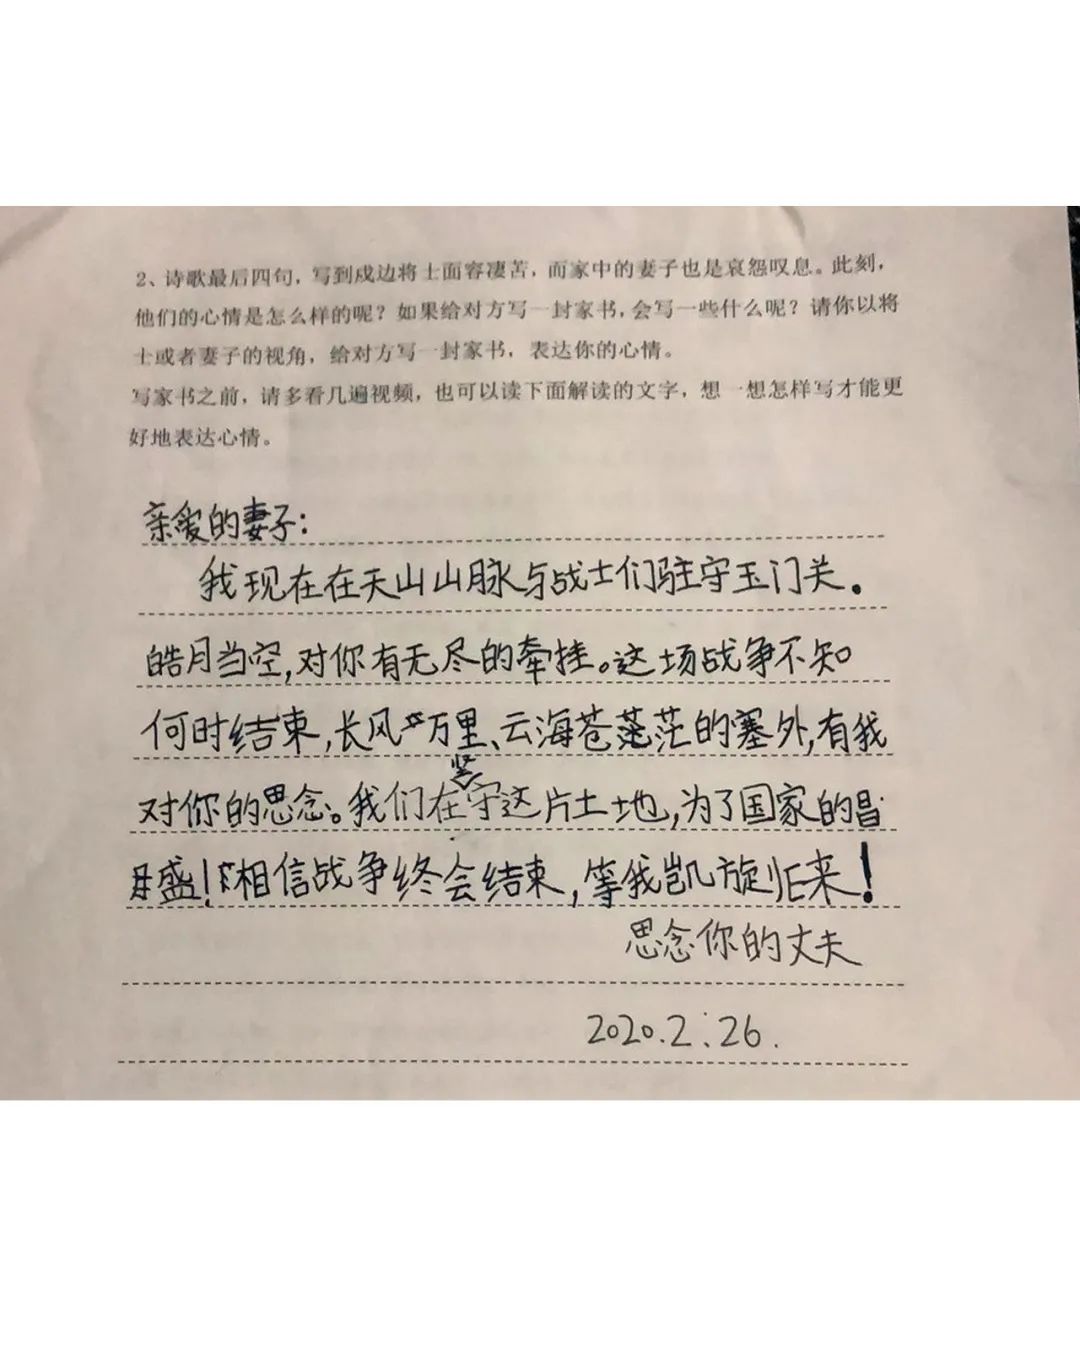 2、诗歌最后四句，写到戍边将士面容凄苦，而家中的妻子也是哀怨叹息。此刻，
他们的心情是怎么样的呢？如果给对方写一封家书，会写一些什么呢？请你以将
士或者妻子的视角，给对方写一封家书，表达你的心情。
写家书之前，请多看几遍视频，也可以读下面解读的文字，想一想怎样写才能更
好地表达心情。
亲爱的妻子：
我现在在天山山脉与战士们驻守玉门关。
皓月当空，对你有无尽的牵挂。这场战争不知
何时结束，长风万里、云海苍茫的塞外，有我
对你的思念。我们在坚守这片土地，为了国家的昌
盛！相信战争终会结束，等我凯旋归来！
思念你的丈夫
2020.2.26.